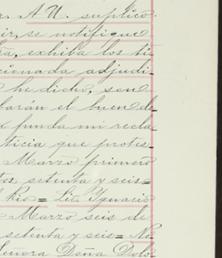 . A U. suplico
ir, se notifique
ña, exhiba los tí-
cionada adjudi-
he dicho, son
barán el buen de-
e funda mi recla
ticia que protes-
Marzo primero
tos setenta y seis=
Rio = Lic. Ignacio
Marzo seis de
setenta y seis= No
Señora Doña Dolo